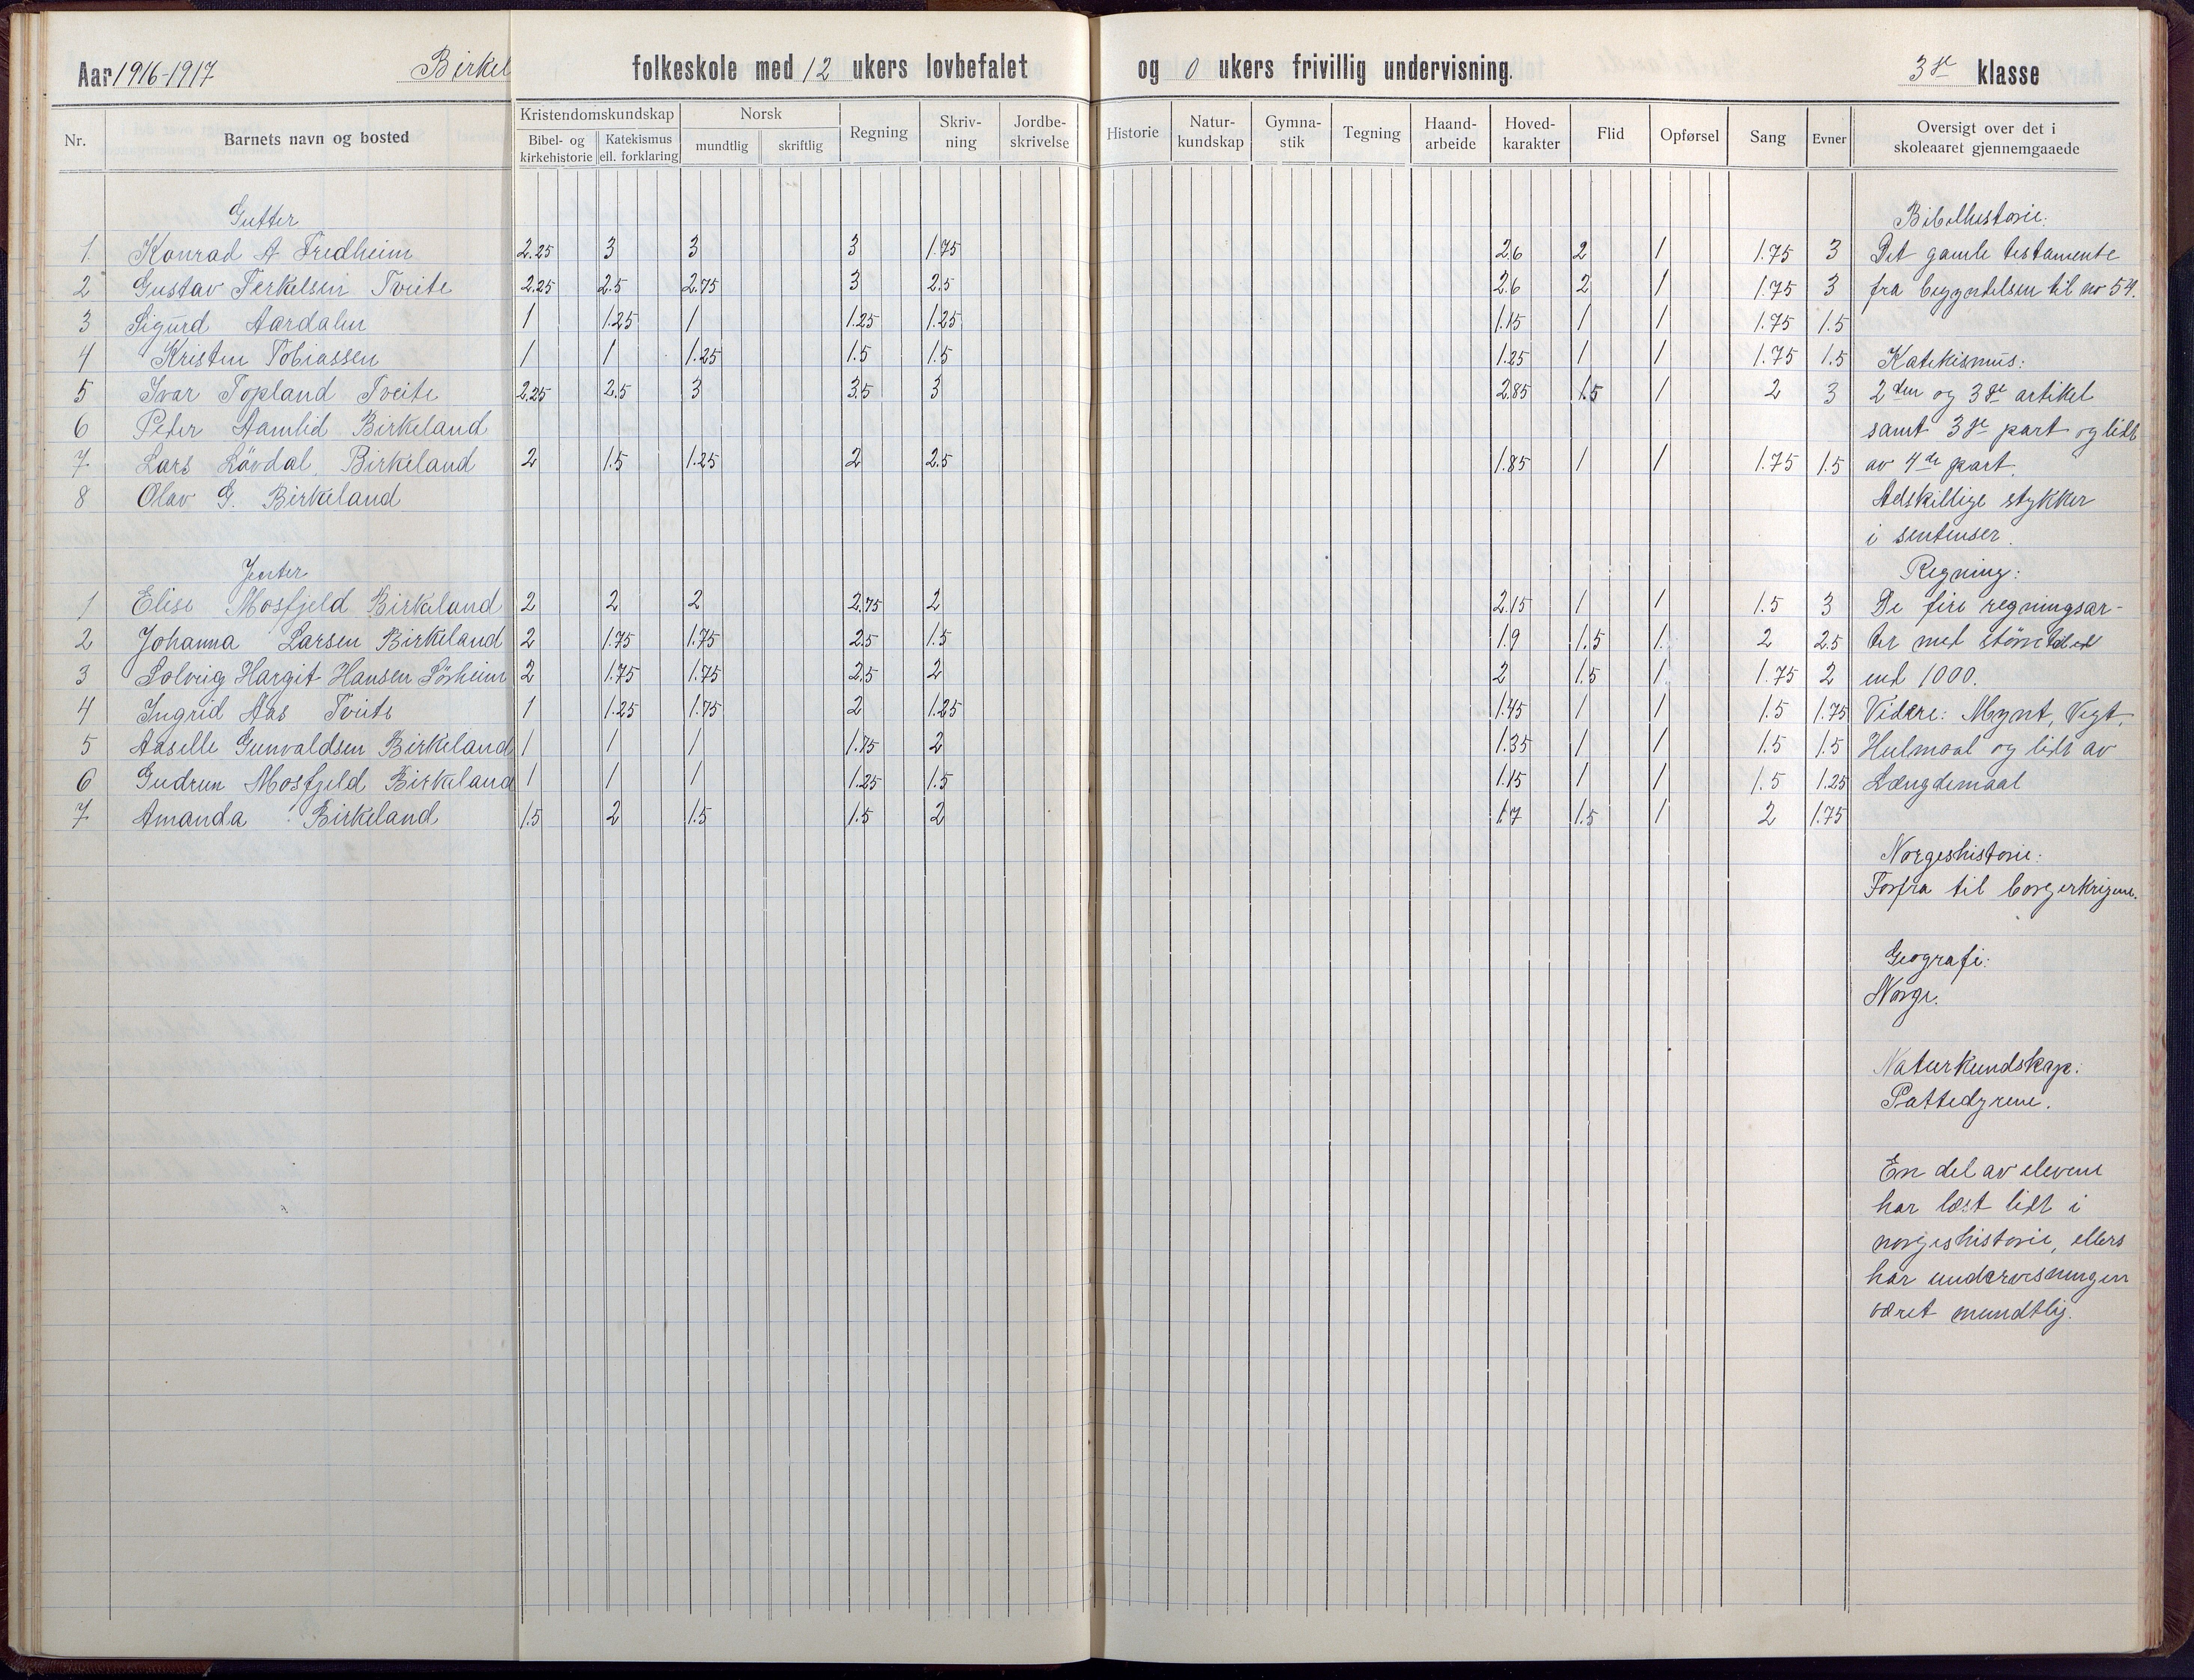 Aar 1916-1917 Birkel folkeskole med 12 ukers lovbefalet og 0 ukers frivillig undervisning. 3die klasse
Nr. Barnets navn og bosted Kristendomskundskap Norsk Regning Skriv-ning Jordbe-skrivelse Historie Natur-kundskap Gymna-stik Tegning Haand-arbeide Hoved-karakter Flid Opførsel Sang Evner Oversigt over det i skoleaaret gjennemgaaede
Bibel- og kirkehistorie Katekismus ell. forklaring mundtlig skriftlig
Gutter
1. Konrad A Fredheim 2.25 3 3 3 1.75 2.6 2 1 1.75 3
2 Gustav Terkelsen Tveite 2.25 2.5 2.75 3 2.5 2.6 2 1 1.75 3
3 Sigurd Aardalen 1 1.25 1 1.25 1.25 1.15 1 1 1.75 1.5
4 Kristen Tobiassen 1 1 1.25 1.5 1.5 1.25 1 1 1.75 1.5
5 Ivar Topland Tveite 2.25 2.5 3 3.5 3 2.85 1.5 1 2 3
6 Peter Aamlid Birkeland
7 Lars Lövdal Birkeland 2 1.5 1.25 2 2.5 1.85 1 1 1.75 1.5
8 Olav G. Birkeland
Jenter
1 Elise Mosfjeld Birkeland 2 2 2 2.75 2 2.15 1 1 1.5 3
2 Johanna Larsen Birkeland 2 1.75 1.75 2.5 1.5 1.9 1.5 1. 2 2.5
3 Solveig Hargit Hansen Sörheim 2 1.75 1.75 2.5 2 2 1.5 1 1.75 2
4 Ingrid Aas Tveite 1 1.25 1.75 2 1.25 1.45 1 1 1.5 1.75
5 Aaselle Gunvaldsen Birkeland 1 1 1 1.75 2 1.35 1 1 1.5 1.5
6 Gudrun Mosfjeld Birkeland 1 1 1 1.25 1.5 1.15 1 1 1.5 1.25
7 Amanda Birkeland 1.5 2 1.5 1.5 2 1.7 1.5 1 2 1.75
Bibelhistorie:
Det gamle testamente
fra begyndelsen til no 54.
Katekismus:
2den og 3die artikel
samt 3die part og lidt
av 4de part.
Adskillige stykker
i sentenser.
Regning:
De fire regningsar-
ter med större tal
end 1000.
Videre: Mynt, Vegt,
Hulmaal og lidt av
Længdemaal
Norgeshistorie:
Forfra til borgerkrigene.
Geografi:
Norge.
Naturkundskap:
Pattedyrene.
En del av elevene
har læst lidt i
norgeshistorie, ellers
har undervisningen
været mundtlig.